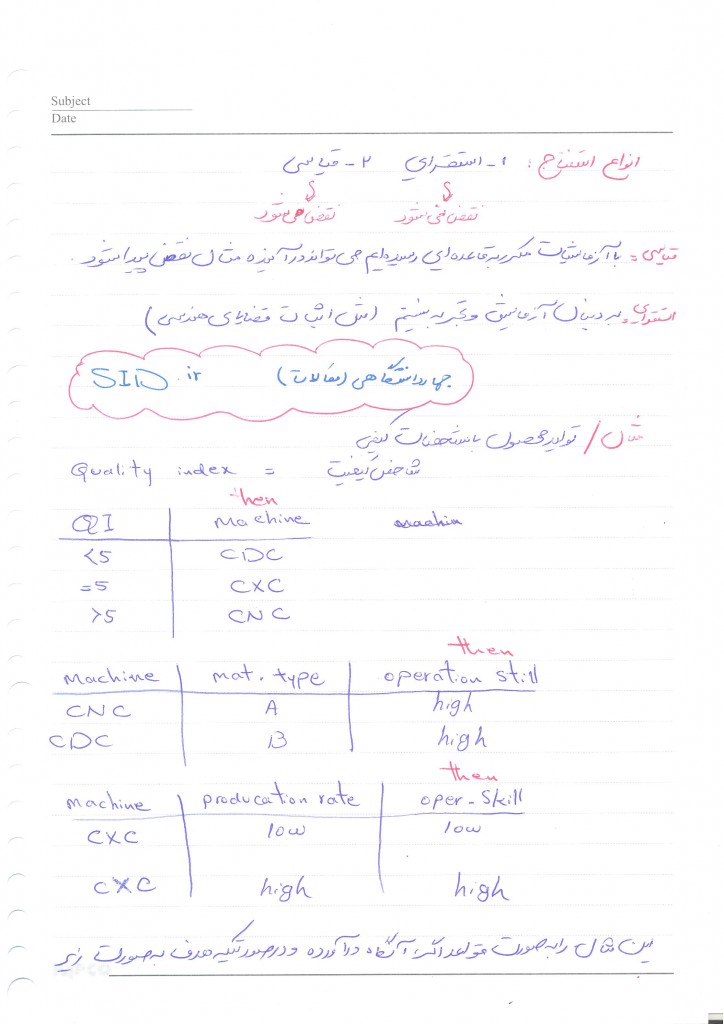 Subject
Date
انواع استنتاج : ۱- استقرای ۲- قیاسی
نقض نمی شود نقض می شود
قیاسی = با آزمایشات مکرر به قاعده ای رسیده ایم می تواند در آینده مثال نقض پیدا شود .
استقرای = به دنبال آزمایش و تجربه نیستیم (مثل اثبات قضایای هندسی)
جهاد دانشگاهی (مقالات) SID.ir
مثال / تولید محصول با مشخصات کیفی
Quality index = شاخص کیفیت
then
QI machine
<5 CDC
=5 CXC
>5 CNC
then
Machine mat. type operation still
CNC A high
CDC B high
then
Machine producation rate oper-skill
CXC low low
CXC high high
این مثال را به صورت قواعد اگر، آنگاه درآورده و در صورتیکه هدف به صورت زیر